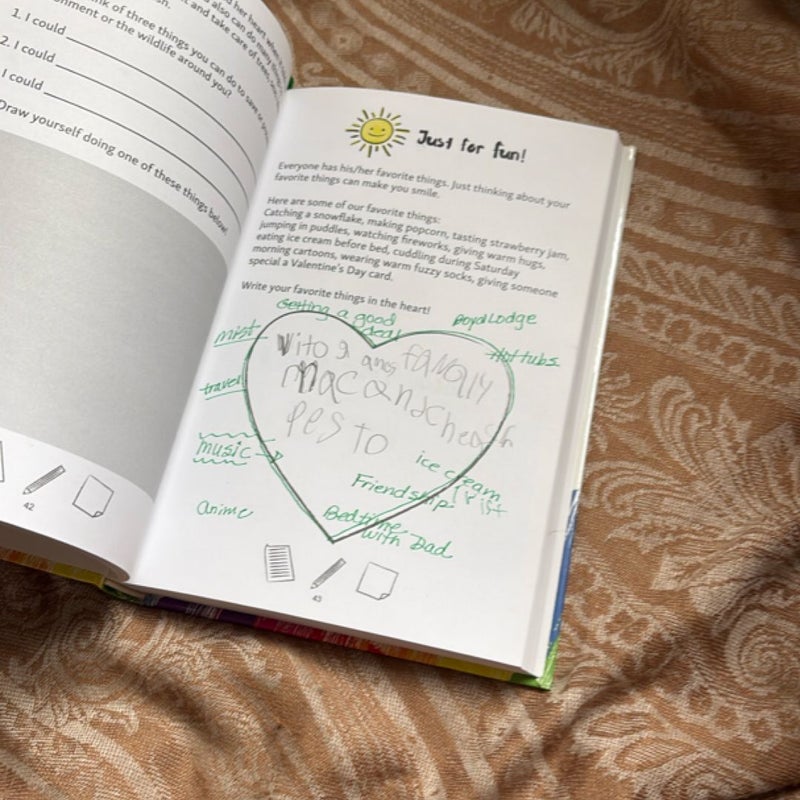 her heart when
also can do many things
and take care of trees,
nk of three things you can do to save or
nment or the wildlife around you?
1. I could
2. I could
I could
Draw yourself doing one of these things below!
42
Just for fun!
Everyone has his/her favorite things. Just thinking about your
favorite things can make you smile.
Here are some of our favorite things:
Catching a snowflake, making popcorn, tasting strawberry jam,
jumping in puddles, watching fireworks, giving warm hugs,
eating ice cream before bed, cuddling during Saturday
morning cartoons, wearing warm fuzzy socks, giving someone
special a Valentine's Day card.
Write your favorite things in the heart!
Getting a good
deal
Lodge
mist
Hot tubs
Vito
family
travel
mac and
pesto
music
ice cream
Friendship
Anime
Bedtime
with Dad
43